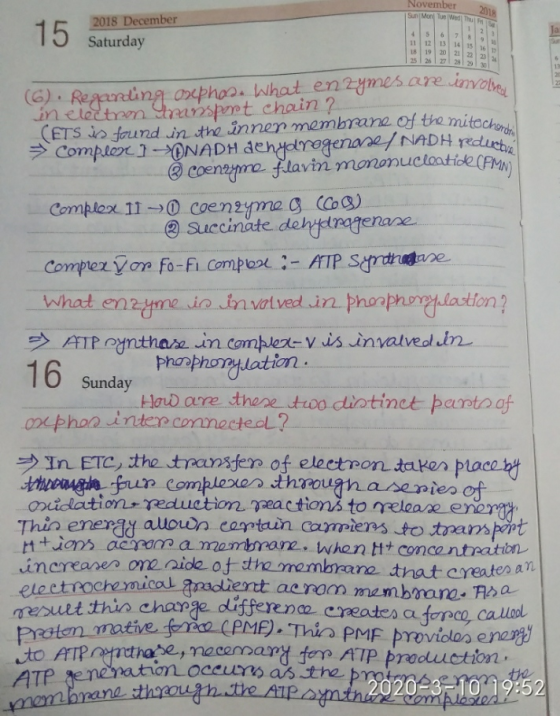 15
2018 December
Saturday
November 2018
Sun Mon Tue Wed Thu Fri Sat
(6). Regarding oxphos. What enzymes are involved
in electron transport chain?
(ETS is found in the inner membrane of the mitochondria
⇒ Complex I → ① NADH dehydrogenase / NADH reductase
② coenzyme flavin mononucleatide (FMN)
Complex II → ① coenzyme Q (CoQ)
② Succinate dehydragenase
Complex V or Fo-F1 complex :- ATP Synthase
What enzyme is involved in phosphorylation?
⇒ ATP synthase in complex-V is invalved in
phosphorylation.
16
Sunday
How are these two distinct parts of
oxphos interconnected?
⇒ In ETC, the transfer of electron takes place by
four complexes through a series of
oxidation-reduction reactions to release energy.
This energy allows certain carriers to transport
H+ ions across a membrane. When H+ concentration
increases one side of the membrane that creates an
electrochemical gradient across membrane. As a
result this charge difference creates a force, called
Proton mative force (PMF). This PMF provides energy
to ATP synthase, necessary for ATP production.
ATP generation occurs as the protons cross the
membrane through the ATP synthase complexes.
2020-3-10 19:52